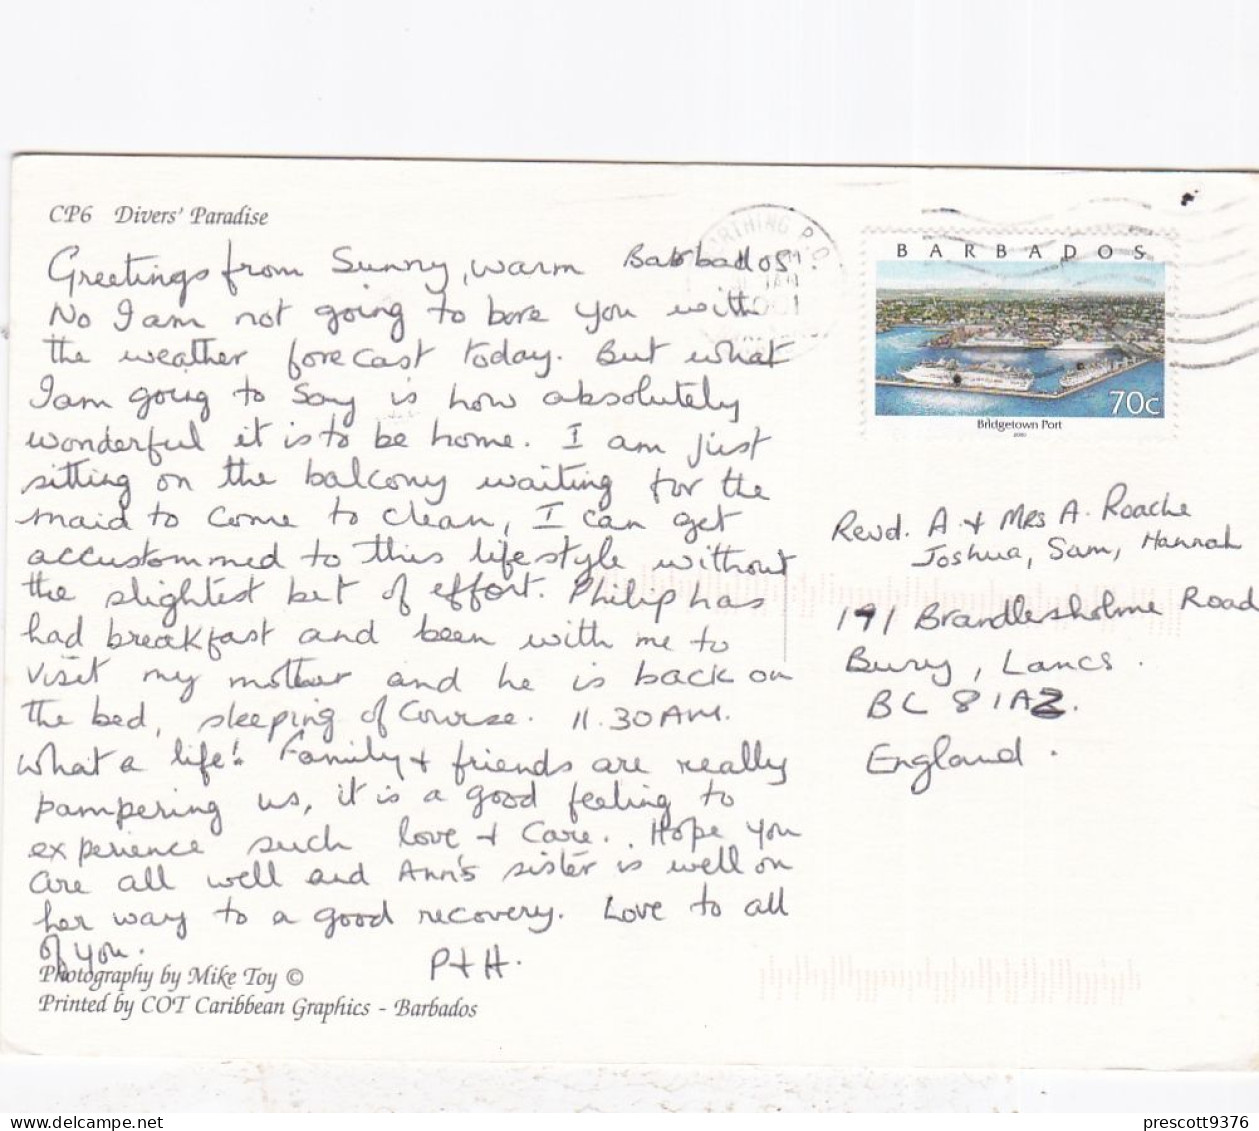 CP6 Divers' Paradise
Greetings from Sunny, warm Barbados.
No I am not going to bore you with
the weather forecast today. But what
I am going to say is how absolutely
wonderful it is to be home. I am just
sitting on the balcony waiting for the
maid to come to clean, I can get
accustommed to this lifestyle without
the slightest bit of effort. Philip has
had breakfast and been with me to
visit my mother and he is back on
the bed, sleeping of course. 11.30AM.
What a life! Family + friends are really
pampering us, it is a good feeling to
experience such love + care. Hope you
are all well and Ann's sister is well on
her way to a good recovery. Love to all
of you.
P + H.
Photography by Mike Toy ©
Printed by COT Caribbean Graphics - Barbados
2001
BARBADOS
70c
Bridgetown Port
2000
Revd. A + Mrs A. Roache
Joshua, Sam, Hannah
191 Brandlesholme Road
Bury, Lancs.
BL 8 1AZ.
England.
prescott9376